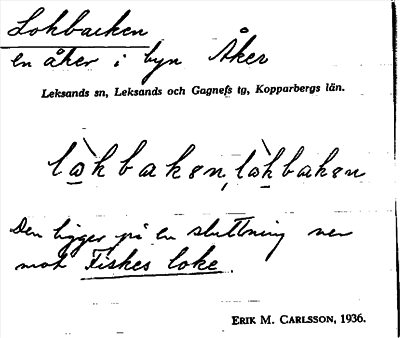 Lokbacken
en åker i byn Åker
Leksands sn, Leksands och Gagnefs tg, Kopparbergs län.
làkbakɛn, làkbakɛn
Den ligger på en sluttning ner
mot Fiskes loke.
ERIK M. CARLSSON, 1936.